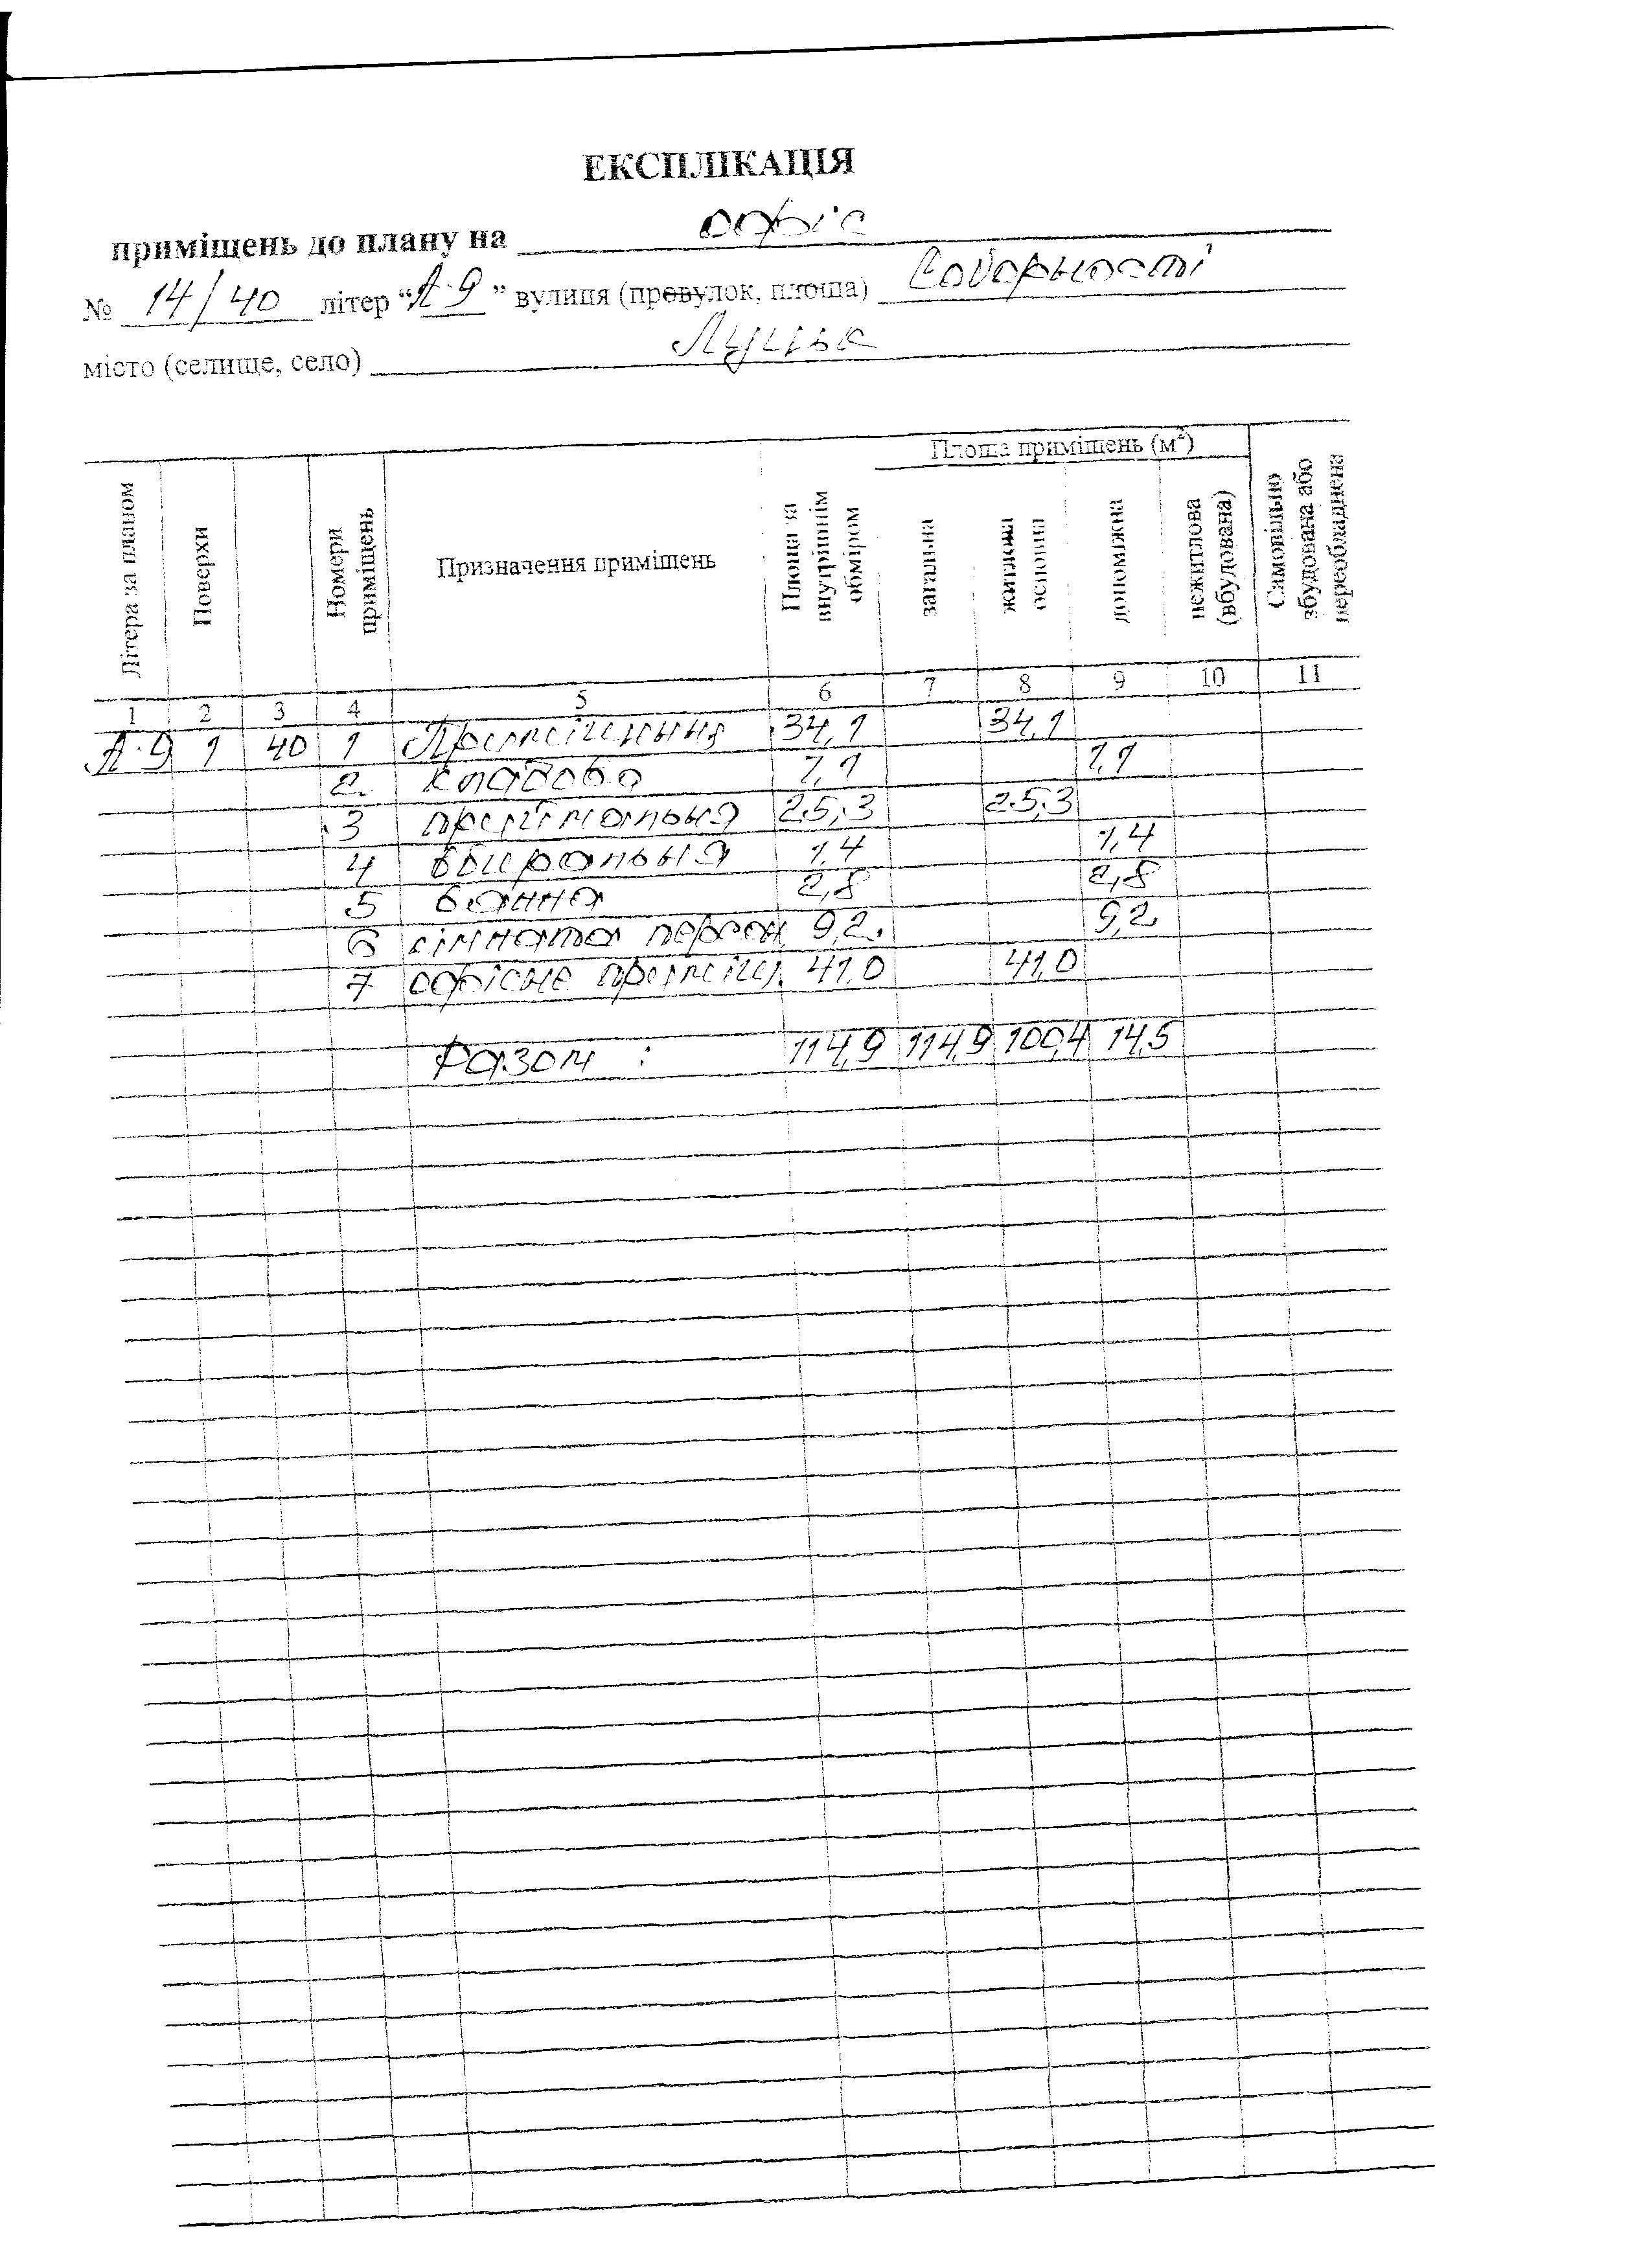 ЕКСПЛІКАЦІЯ
приміщень до плану на офіс
№ 14/40 літер “А-9” вулиця (провулок, площа) Соборності
місто (селище, село) Луцьк
Літера за планом Поверхи Номери приміщень Призначення приміщень Площа за внутрішнім обміром Площа приміщень (м²) загальна житлова основна допоміжна нежитлова (вбудована) Самовільно збудована або переобладнена
1 2 3 4 5 6 7 8 9 10 11
А-9 1 40 1 Приміщення 34,1 34,1
2. кладова 1,1 1,1
3 приймальня 25,3 25,3
4 вбиральня 1,4 1,4
5 ванна 2,8 2,8
6 кімната персон. 9,2. 9,2.
7 офісне приміщ. 41,0 41,0
Разом : 114,9 114,9 100,4 14,5